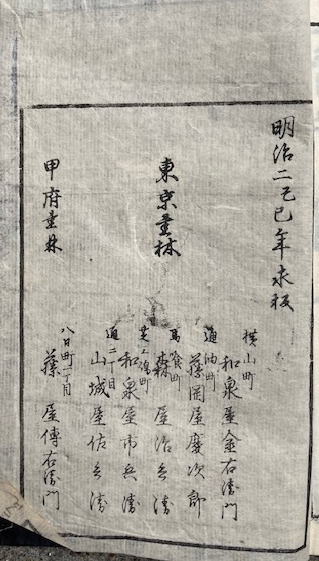 明治二己巳年求板
東京書林
横山町
和泉屋金右衛門
通油町
藤岡屋慶次郎
馬喰町
森屋治兵衛
芝三嶋町
和泉屋市兵衛
通二丁目
山城屋佐兵衛
甲府書林
八日町一丁目
藤屋傳右衛門